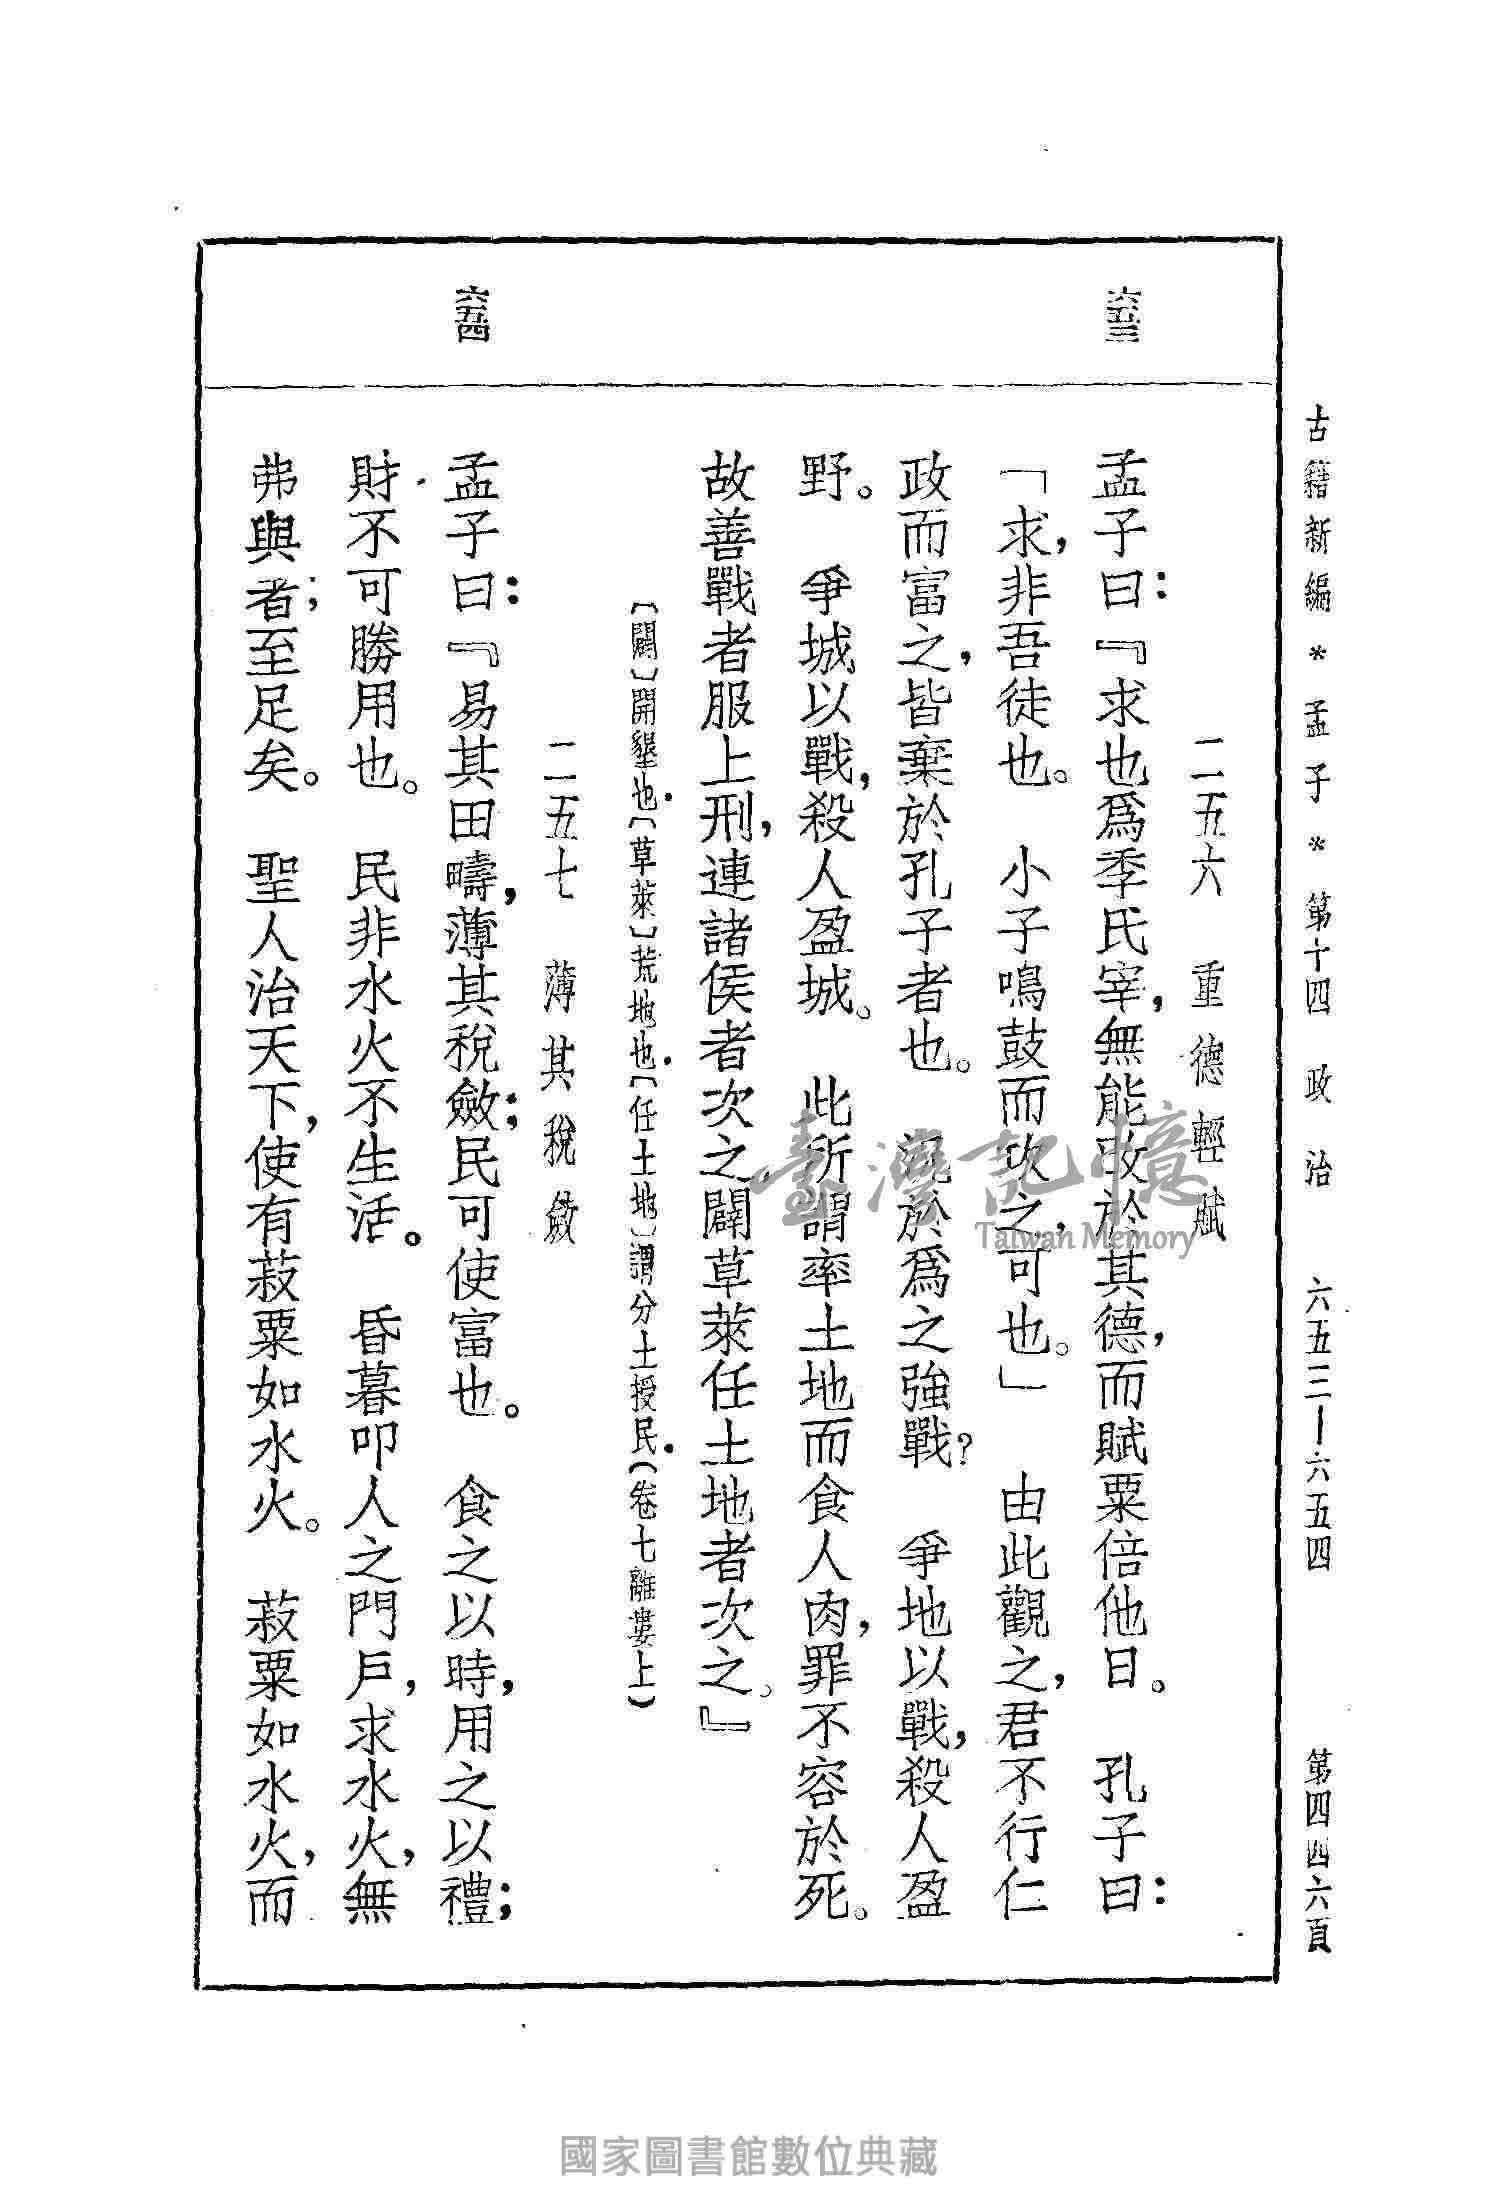 古籍新編*孟子*第十四 政治 六五三—六五四 第四四六頁
六五三
二五六 重德輕賦
孟子曰：『求也爲季氏宰，無能改於其德，而賦粟倍他日。 孔子曰：
「求，非吾徒也。 小子鳴鼓而攻之，可也。」 由此觀之，君不行仁
政而富之，皆棄於孔子者也。 況於爲之強戰？ 爭地以戰，殺人盈
野。 爭城以戰，殺人盈城。 此所謂率土地而食人肉，罪不容於死。
故善戰者服上刑，連諸侯者次之，闢草萊任土地者次之。』
〔闢〕開墾也．〔草萊〕荒地也．〔任土地〕謂分土授民．(卷七離婁上)
六五四
二五七 薄其稅斂
孟子曰：『易其田疇，薄其稅斂；民可使富也。 食之以時，用之以禮；
財不可勝用也。 民非水火不生活。 昏暮叩人之門戶，求水火，無
弗與者；至足矣。 聖人治天下，使有菽粟如水火。 菽粟如水火，而
臺灣記憶
Taiwan Memory
國家圖書館數位典藏